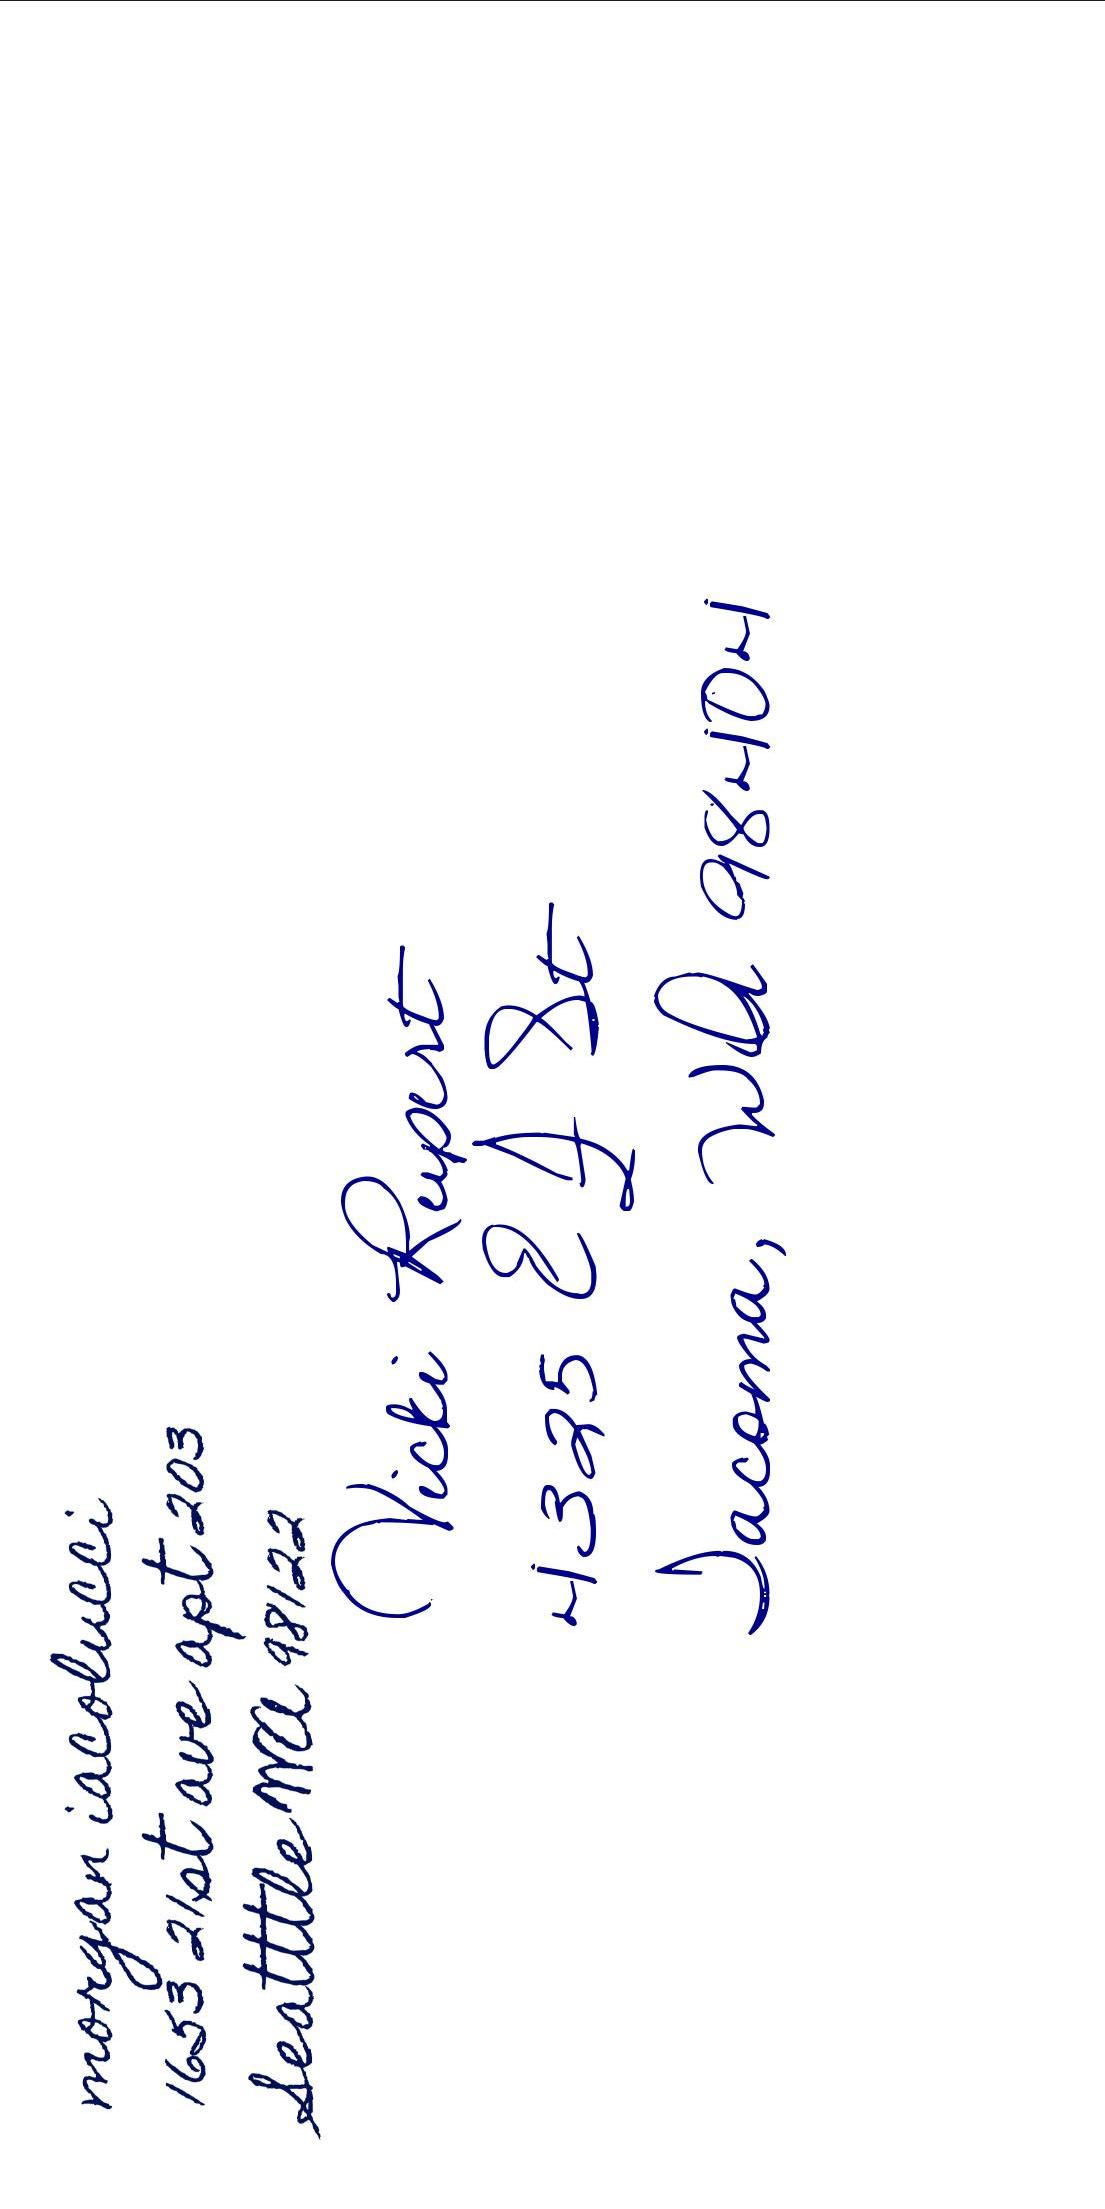 morgan iacolucci
1653 21st ave apt 203
Seatttle WA 98122
Vicki Rupert
4325 E J St
Tacoma, WA 98404